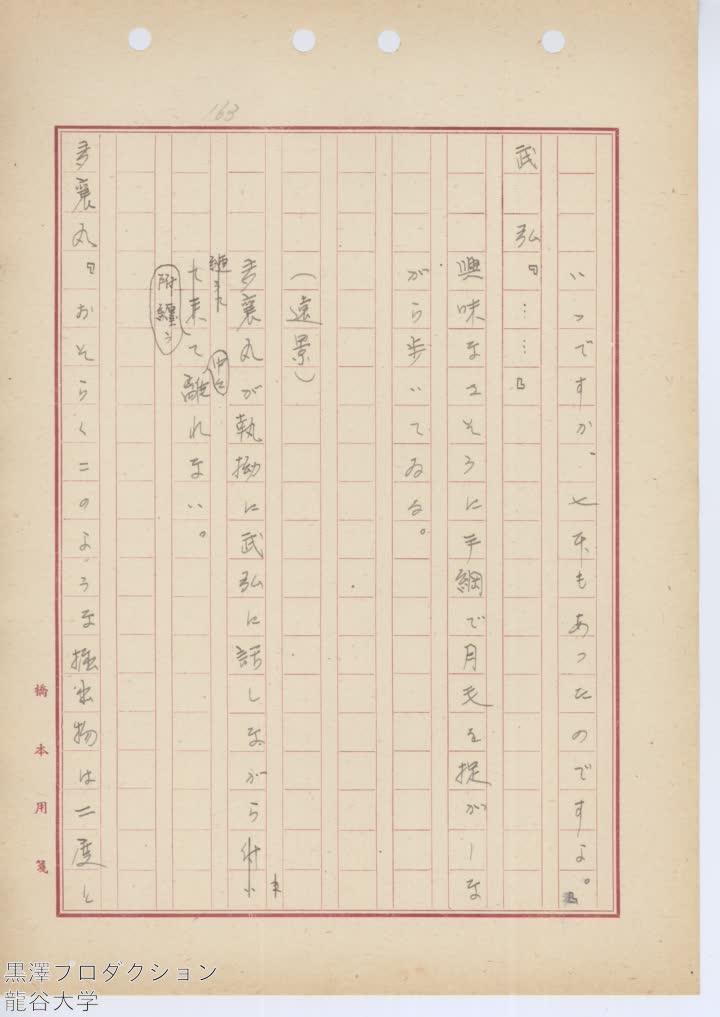 163
いつですか、七本もあつたのですよ。』
武　弘『……』
興味なさそうに手綱で月毛を捉がしな
がら歩いてゐる。
（遠景）
多襄丸が執拗に武弘に話しながら付い
纏つて
て来て中々離れない。
附纏う
多襄丸『おそらくこのような掘出物は二度と
橋本用箋
黒澤プロダクション
龍谷大学